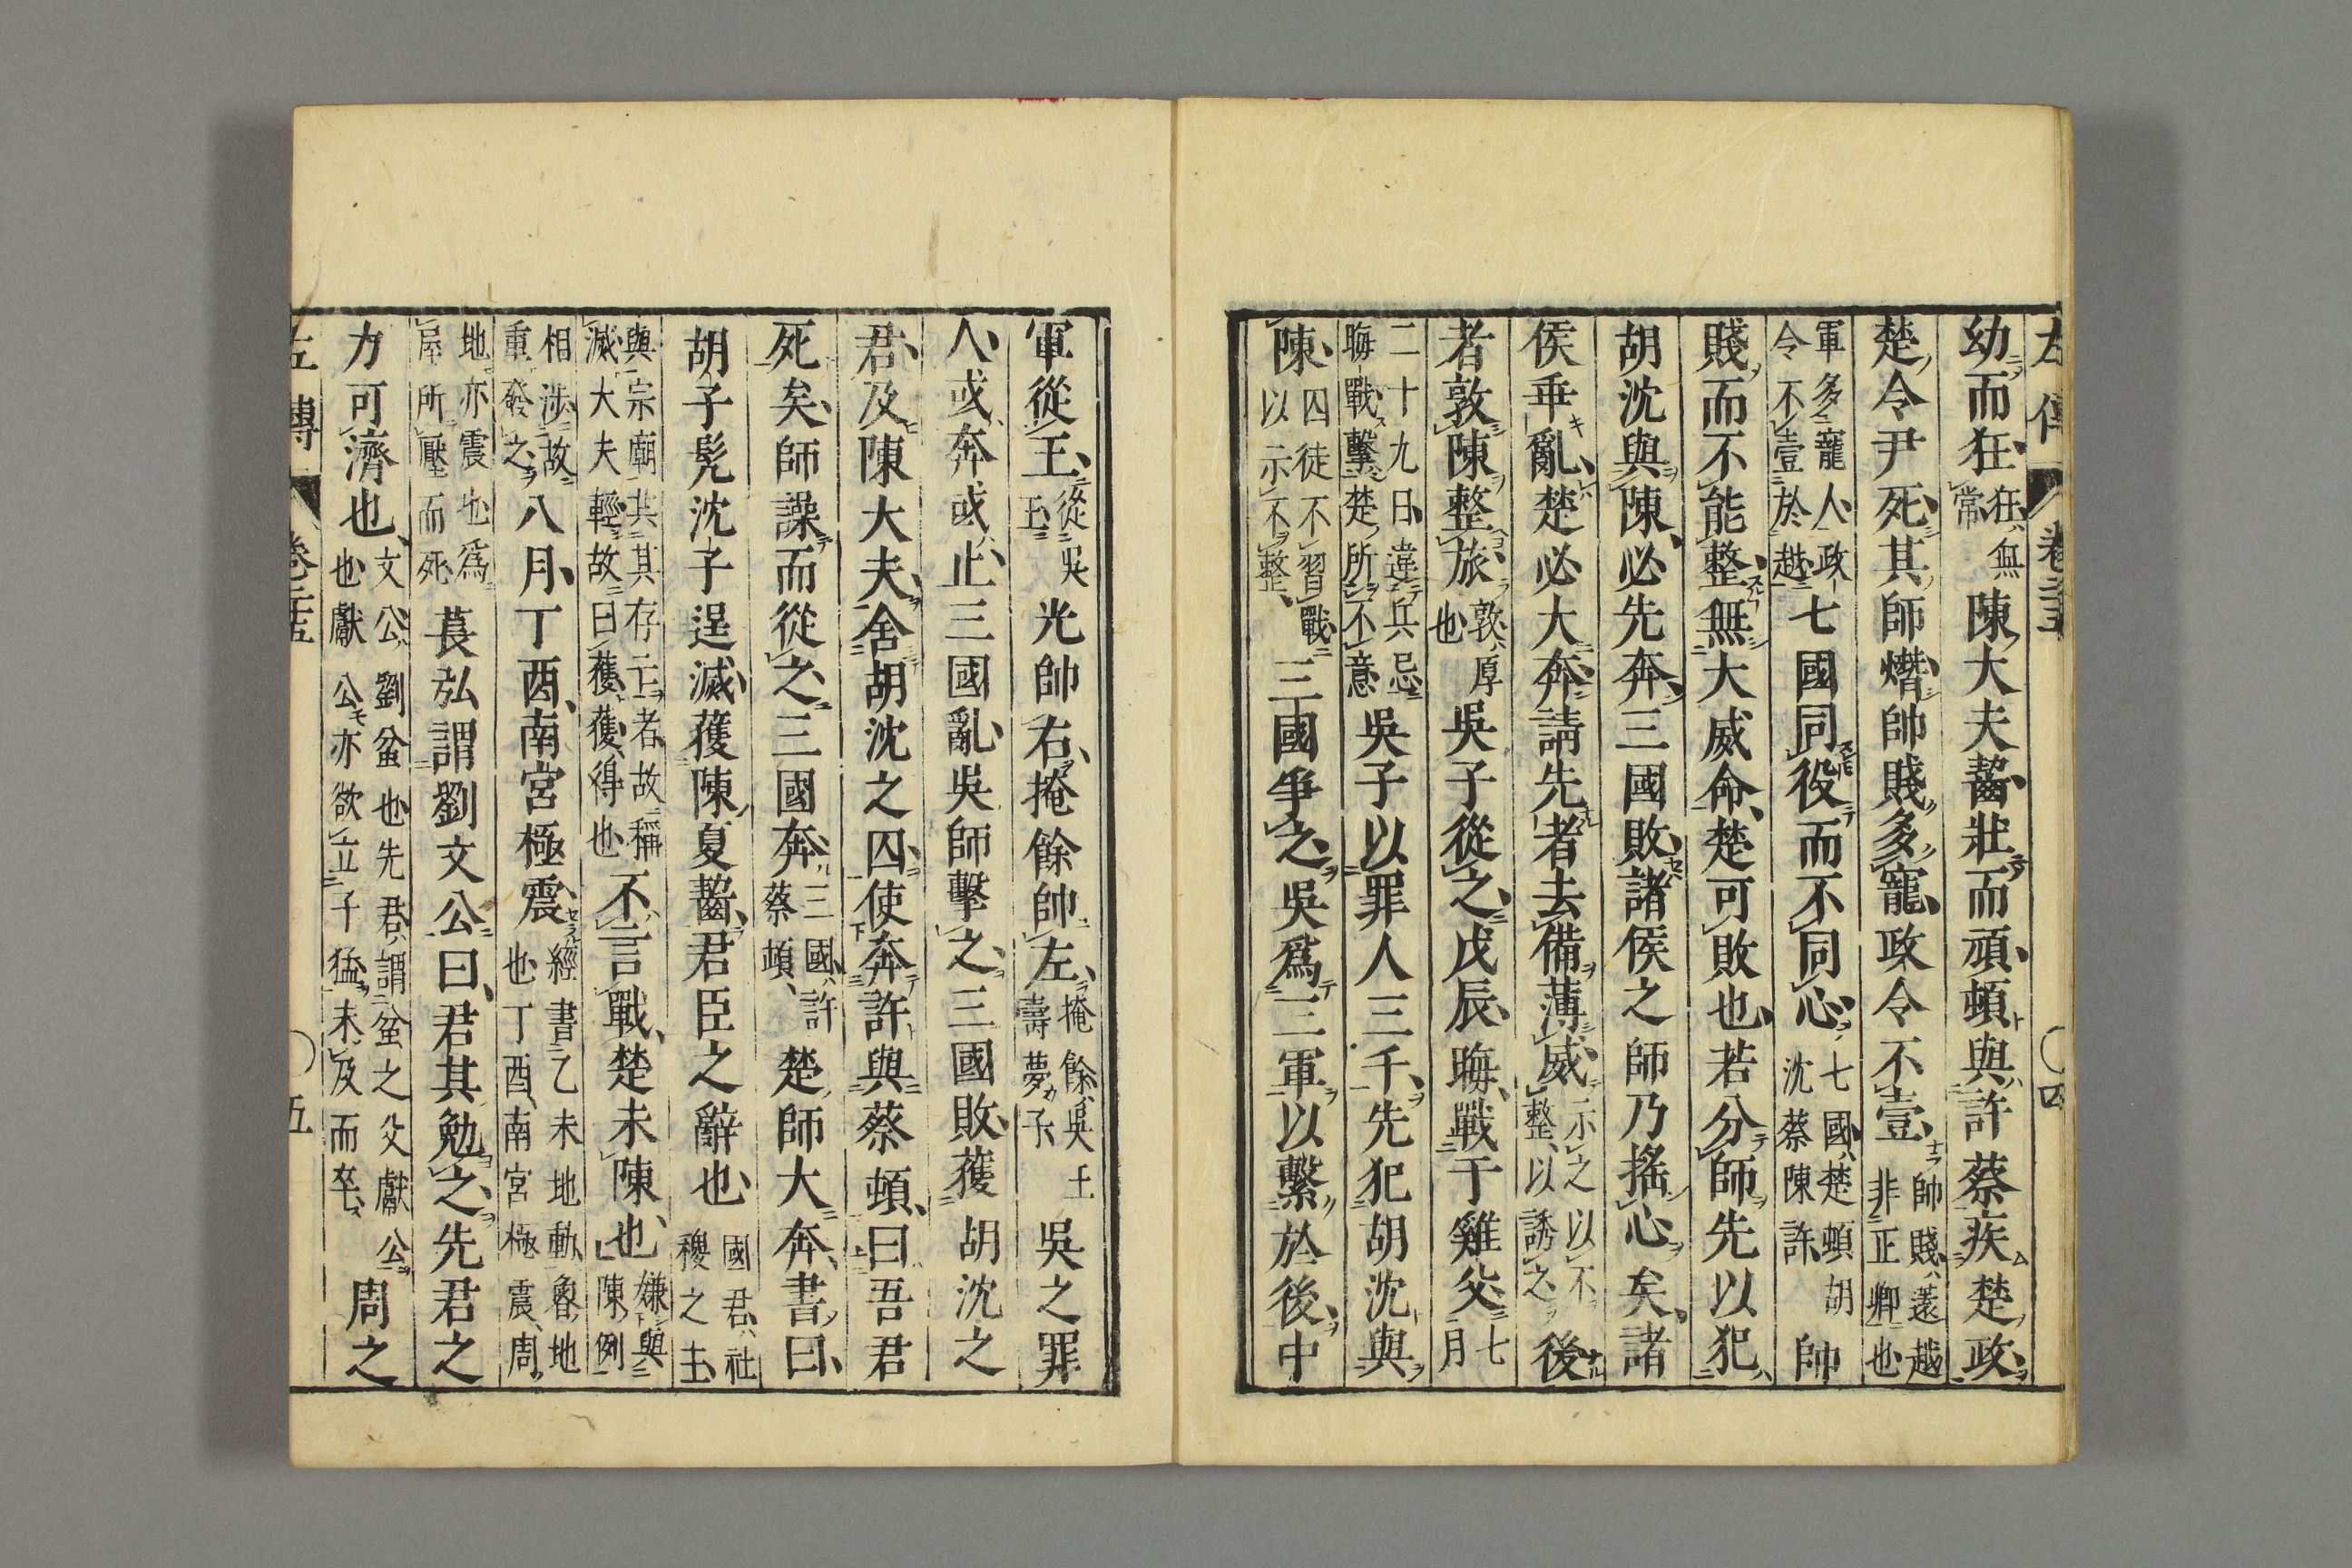 左傳 卷二十五 〇四
幼而狂狂無常陳大夫齧壯而頑頓與許蔡疾楚政
楚令尹死其師熸帥賤多寵政令不壹帥賤薳越非正卿也
軍多寵人政令不壹於越七國同役而不同心七國楚頓胡沈蔡陳許帥
賤而不能整無大威命楚可敗也若分師先以犯
胡沈與陳必先奔三國敗諸侯之師乃搖心矣諸
侯乖亂楚必大奔請先者去備薄威示之以不整以誘之後
者敦陳整旅敦厚也吳子從之戊辰晦戰于雞父七月
二十九日違兵忌晦戰擊楚所不意吳子以罪人三千先犯胡沈與
陳囚徒不習戰以示不整三國爭之吳爲三軍以繫於後中
軍從王從吳王光帥右掩餘帥左掩餘吳王壽夢子吳之罪
人或奔或止三國亂吳師擊之三國敗獲胡沈之
君及陳大夫舍胡沈之囚使奔許與蔡頓曰吾君
死矣師譟而從之三國奔三國許蔡頓楚師大奔書曰
胡子髡沈子逞滅獲陳夏齧君臣之辭也國君社稷之主
與宗廟共其存亡者故稱滅大夫輕故曰獲獲得也不言戰楚未陳也嫌與陳例
相涉故重發之八月丁酉南宮極震經書乙未地動魯地也丁酉南宮極震周
地亦震也爲屋所壓而死萇弘謂劉文公曰君其勉之先君之
力可濟也文公劉盆也先君謂盆之父獻公也獻公亦欲立子猛未及而卒周之
左傳 卷二十五 〇五